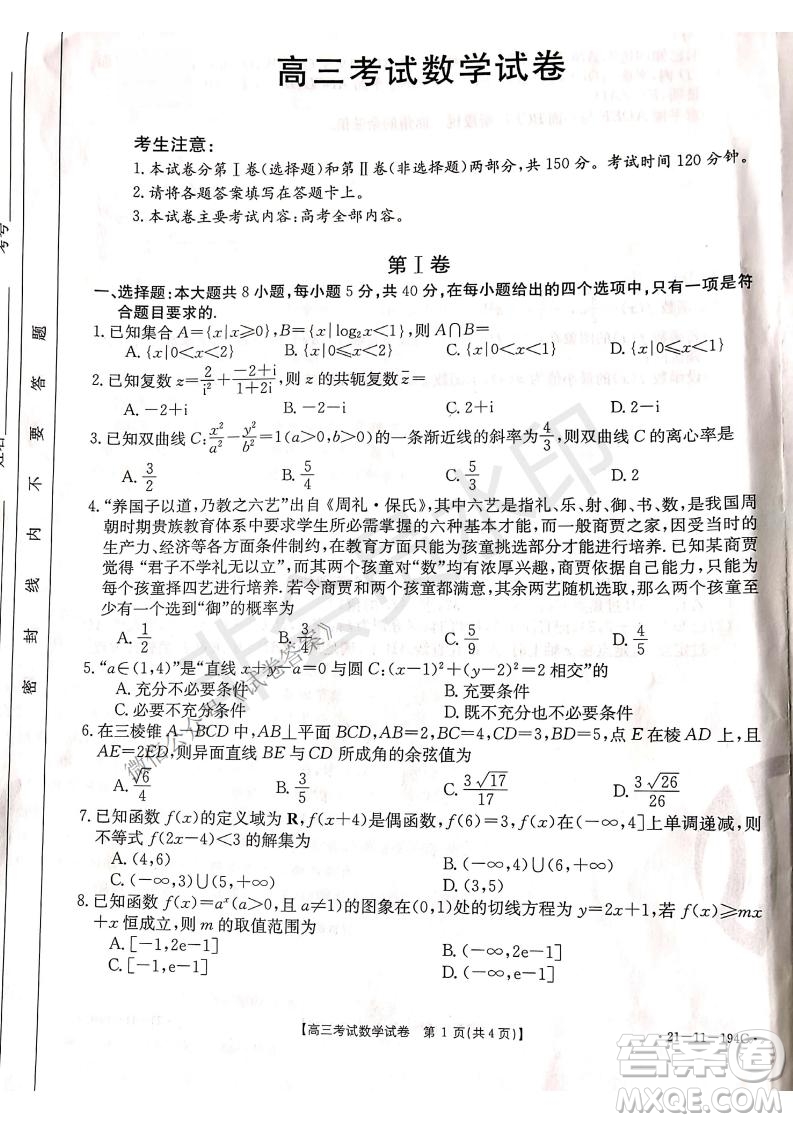 高三考试数学试卷
考生注意:
1.本试卷分第Ⅰ卷(选择题)和第Ⅱ卷(非选择题)两部分,共 150 分。考试时间 120 分钟。
2.请将各题答案填写在答题卡上。
3.本试卷主要考试内容:高考全部内容。
第Ⅰ卷
一、选择题:本大题共 8 小题,每小题 5 分,共 40 分,在每小题给出的四个选项中,只有一项是符
合题目要求的.
1.已知集合 A={x|x≥0},B={x|log₂x<1},则 A∩B=
A.{x|0<x<2} B.{x|0≤x<2} C.{x|0<x<1} D.{x|0≤x<1}
2.已知复数 z=2/i²+(-2+i)/(1+2i),则 z 的共轭复数 z̄=
A.-2+i B.-2-i C.2+i D.2-i
3.已知双曲线 C:x²/a²-y²/b²=1(a>0,b>0)的一条渐近线的斜率为4/3,则双曲线 C 的离心率是
A.3/2 B.5/4 C.5/3 D.2
4.“养国子以道,乃教之六艺”出自《周礼·保氏》,其中六艺是指礼、乐、射、御、书、数,是我国周
朝时期贵族教育体系中要求学生所必需掌握的六种基本才能,而一般商贾之家,因受当时的
生产力、经济等各方面条件制约,在教育方面只能为孩童挑选部分才能进行培养.已知某商贾
觉得“君子不学礼无以立”,而其两个孩童对“数”均有浓厚兴趣,商贾能依据自己的能力,为
每个孩童择四艺进行培养.若令商贾和两个孩童都满意,其余两艺随机选取,那么两个孩童至
少有一个选到“御”的概率为
A.1/2 B.3/4 C.5/9 D.4/5
5.“a∈(1,4)”是“直线 x+y-a=0 与圆 C:(x-1)²+(y-2)²=2 相交”的
A.充分不必要条件 B.充要条件
C.必要不充分条件 D.既不充分也不必要条件
6.在三棱锥 A-BCD 中,AB⊥平面 BCD,AB=2,BC=4,CD=3,BD=5,点 E 在棱 AD 上,且
AE=2ED,则异面直线 BE 与 CD 所成角的余弦值为
A.√6/4 B.3/5 C.3√17/17 D.3√26/26
7.已知函数 f(x)的定义域为 R,f(x+4)是偶函数,f(6)=3,f(x)在(-∞,4]上单调递减,则
不等式 f(2x-4)<3 的解集为
A.(4,6) B.(-∞,4)∪(6,+∞)
C.(-∞,3)∪(5,+∞) D.(3,5)
8.已知函数 f(x)=aˣ(a>0,且 a≠1)的图象在(0,1)处的切线方程为 y=2x+1,若 f(x)≥mx
+x 恒成立,则 m 的取值范围为
A.[-1,2e-1] B.(-∞,2e-1]
C.[-1,e-1] D.(-∞,e-1]
【高三考试数学试卷 第 1 页(共 4 页)】
·21-11-194C·
密 封 线 内 不 要 答 题
微信公众号《试卷答案》
非会员水印
答案圈
MXQE.COM